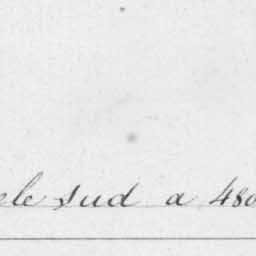 ele sud a 480